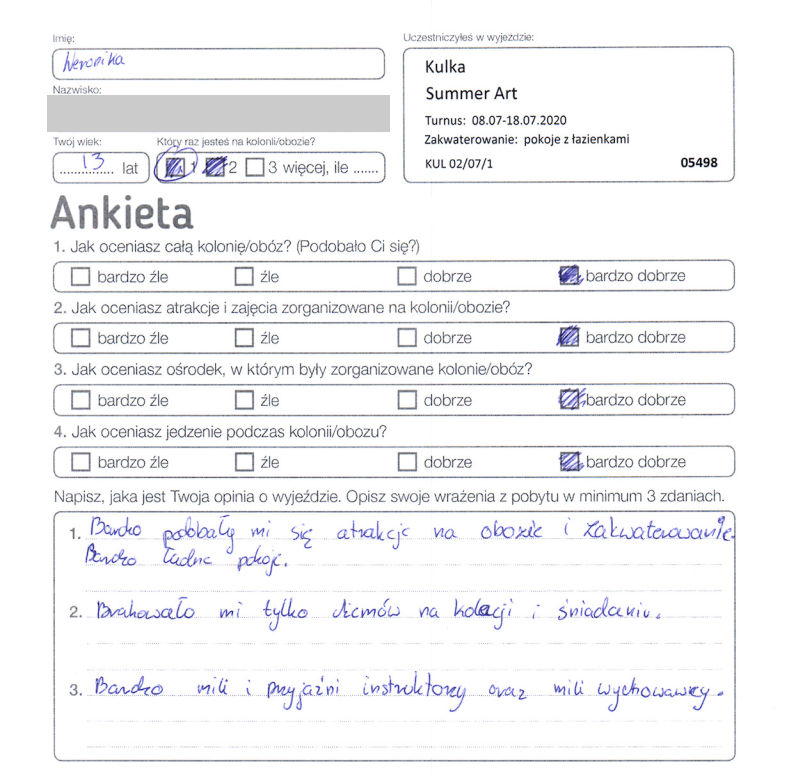 Imię:
Weronika
Nazwisko:
Twój wiek:
13 lat
Który raz jesteś na kolonii/obozie?
1 2 3 więcej, ile .......
Uczestniczyłeś w wyjeździe:
Kulka
Summer Art
Turnus: 08.07-18.07.2020
Zakwaterowanie: pokoje z łazienkami
KUL 02/07/1 05498
Ankieta
1. Jak oceniasz całą kolonię/obóz? (Podobało Ci się?)
bardzo źle źle dobrze bardzo dobrze
2. Jak oceniasz atrakcje i zajęcia zorganizowane na kolonii/obozie?
bardzo źle źle dobrze bardzo dobrze
3. Jak oceniasz ośrodek, w którym były zorganizowane kolonie/obóz?
bardzo źle źle dobrze bardzo dobrze
4. Jak oceniasz jedzenie podczas kolonii/obozu?
bardzo źle źle dobrze bardzo dobrze
Napisz, jaka jest Twoja opinia o wyjeździe. Opisz swoje wrażenia z pobytu w minimum 3 zdaniach.
1. Bardzo podobały mi się atrakcje na obozie i zakwaterowanie.
Bardzo ładne pokoje.
2. Brakowało mi tylko dżemów na kolacji i śniadaniu.
3. Bardzo mili i przyjaźni instruktorzy oraz mili wychowawcy.